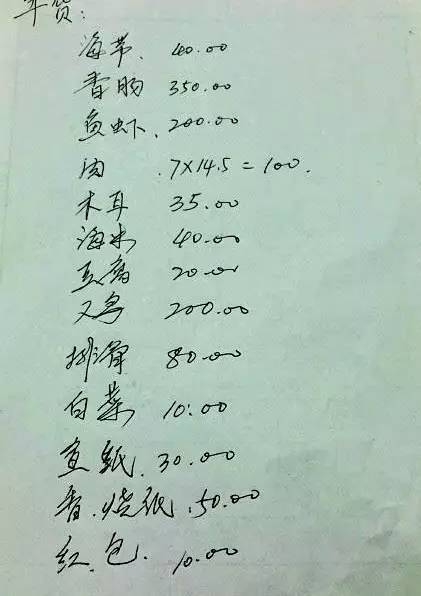 年货:
海带. 40.00
香肠 350.00
鱼虾. 200.00
肉 .7X14.5=100.
木耳 35.00
海米 40.00
豆腐 20.00
又鸟 200.00
排骨 80.00
白菜 10.00
鱼纸. 30.00
香.烧纸. 50.00
红.包. 10.00